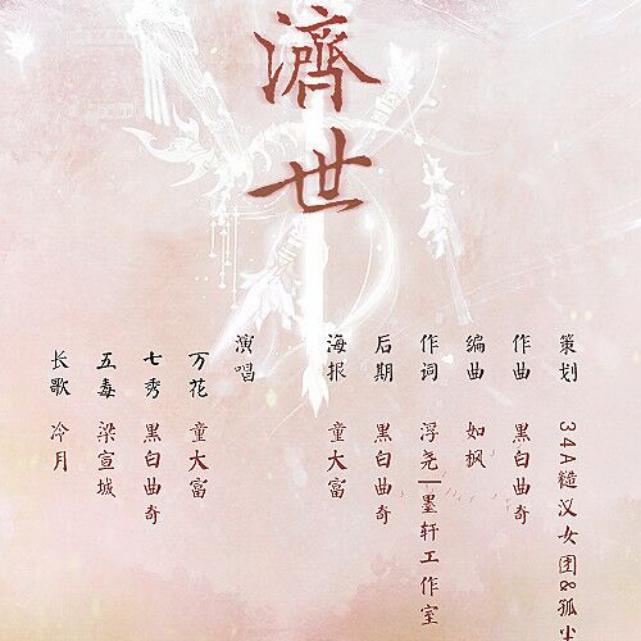 濟世
策划 34A糙汉女团&孤尘
作曲 黑白曲奇
编曲 如枫
作词 浮尧|墨轩工作室
后期 黑白曲奇
海报 童大富
演唱
万花 童大富
七秀 黑白曲奇
五毒 梁宣城
长歌 冷月